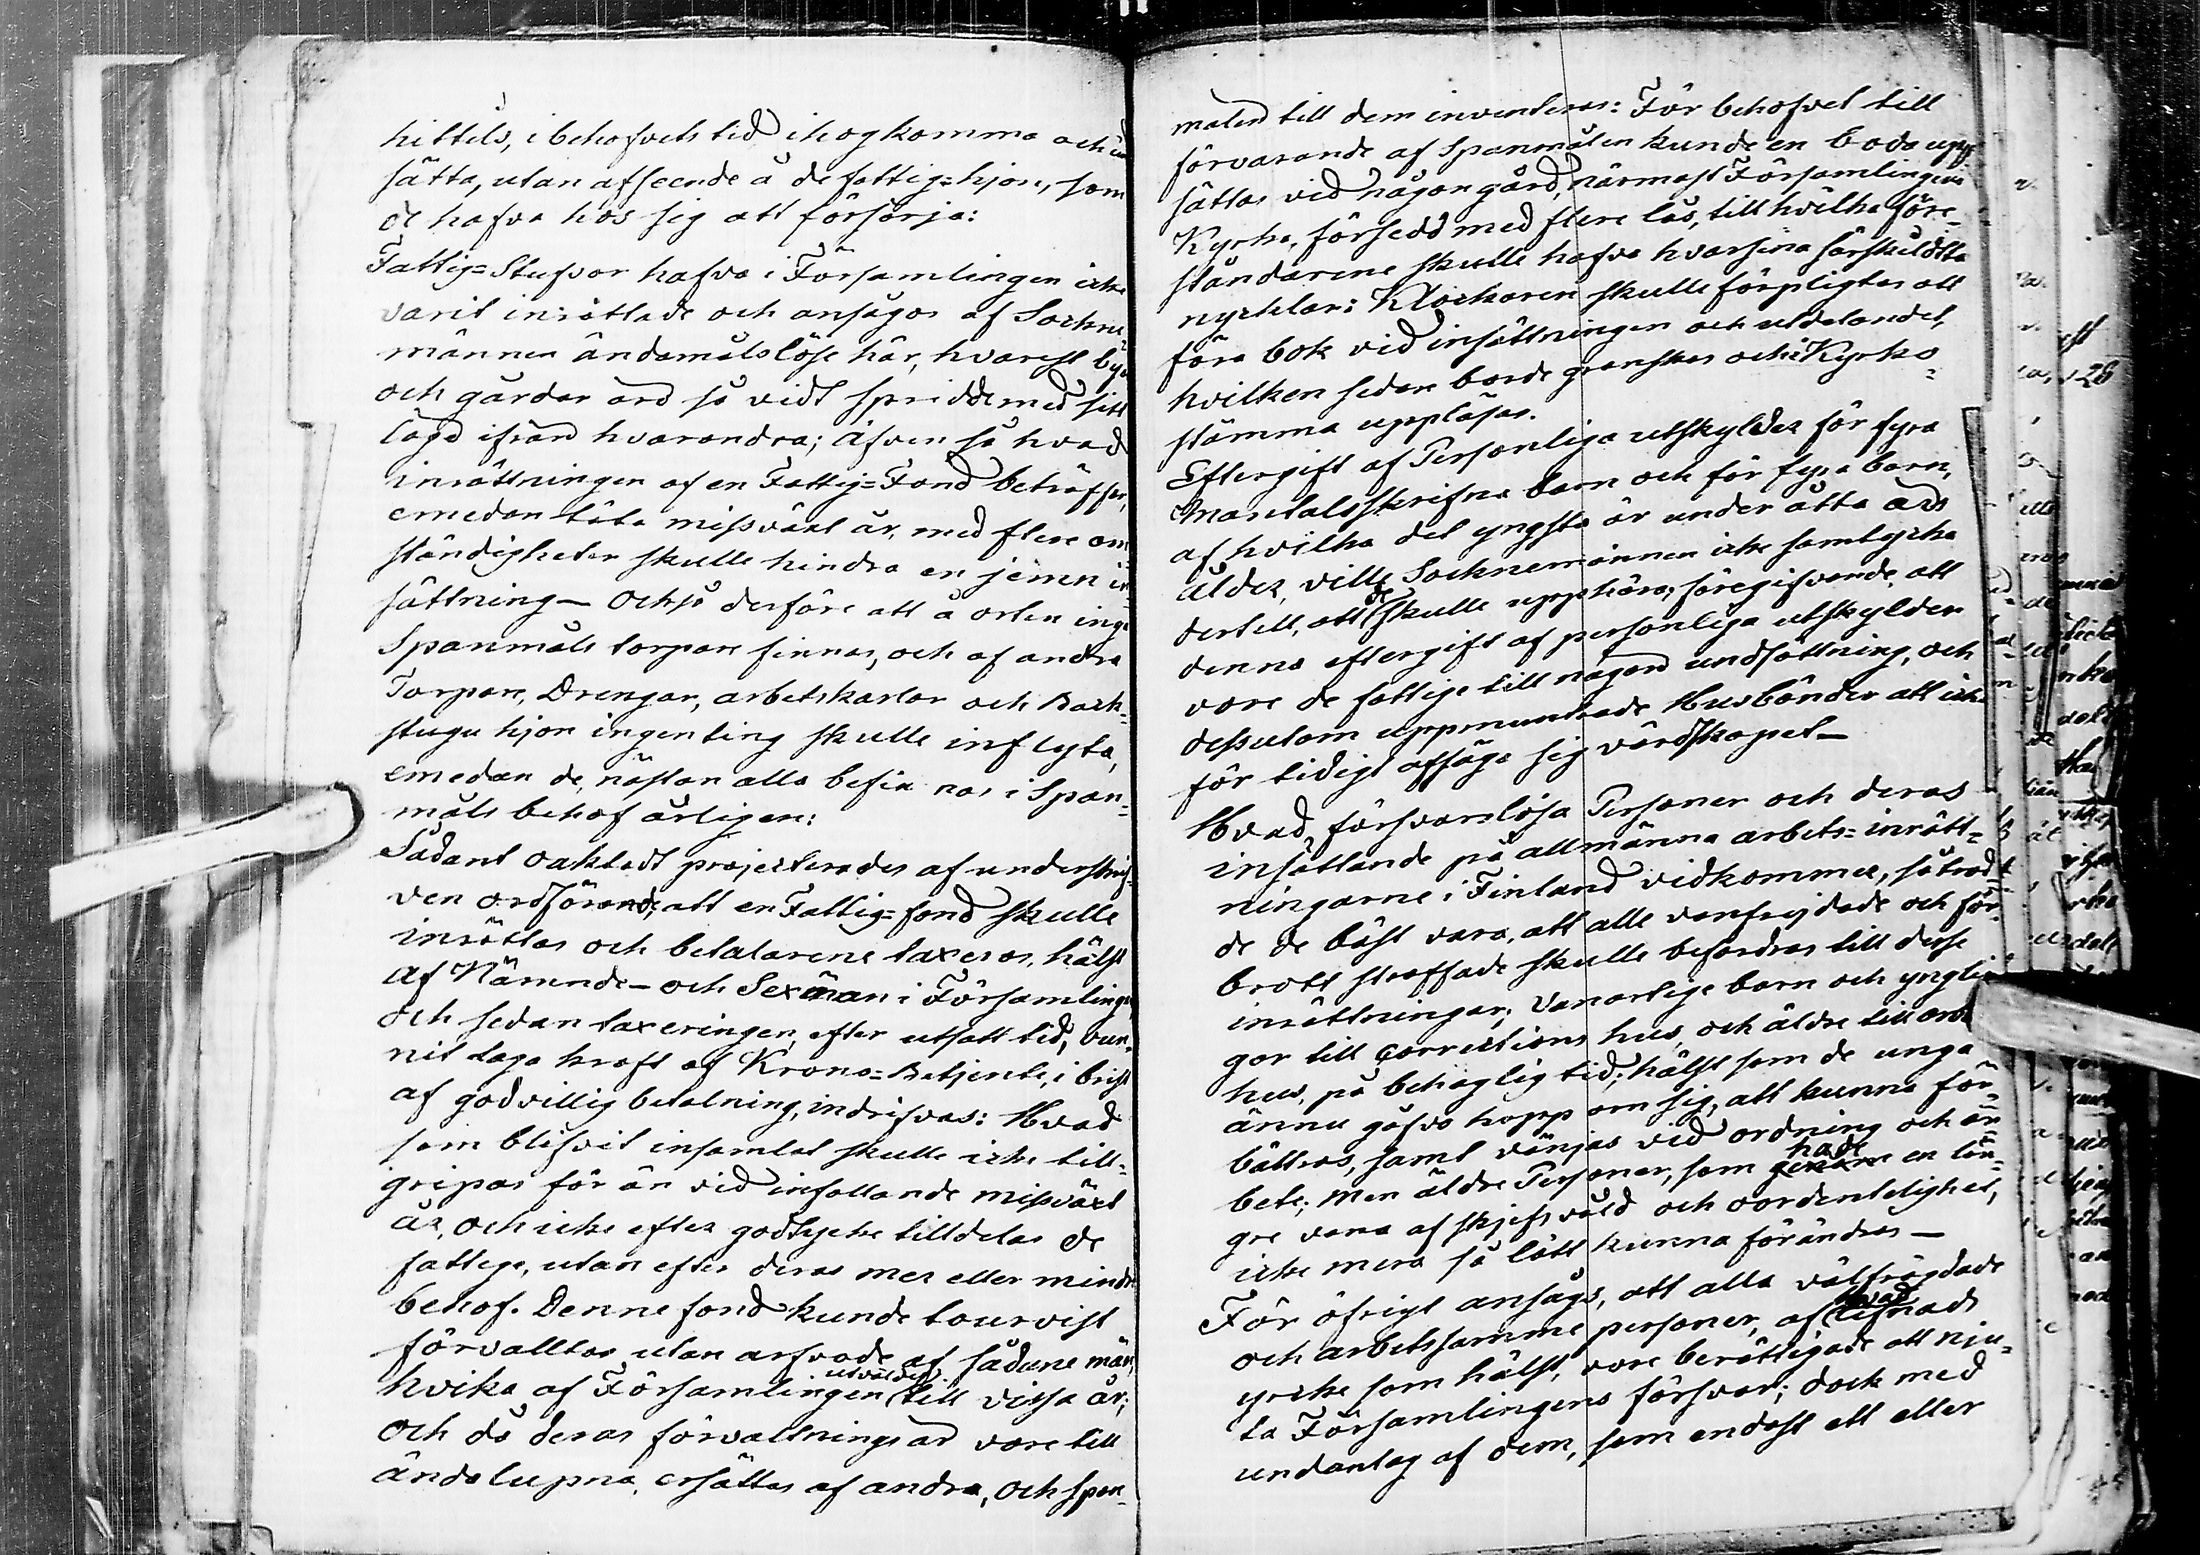 hittils, i behofvets tid ihogkomma och
sätta, utan afseende å de fattig=hjon, som
de hafva hos sig att försörja:
Fattig=Stufvor hafva i Församlingen icke
varit inrättade och ansågos af Sockne
männen ändamålslöse här, hvarest bya
och gårdar äro så vidt spridde med sitt
läge ifrån hvarandra; äfven så hvad
inrättningen af en Fattig=Fond beträffar,
emedan täta missväxt år, med flere om
ständigheter skulle hindra en jemn in
sättning — Också derföre att å orten inga
Spanmåls torpare finnas, och af andra
Torpare, Drengar, arbetskarlar och Back=
stugu hjon ingenting skulle inflyta,
emedan de, nästan alla befinnas i Span=
måls behof årligen:
Sådant oaktadt projecterades af underskrif=
ven ordförande, att en Fattig=fond skulle
inrättas och betalarene taxeras, hälst
af Nämnde— och Sexmän i Församlingen,
och sedan taxeringen, efter utsatt tid, vun=
nit laga kraft af Krono=Betjente, i brist
af godvillig betalning, indrifvas: Hvad
som blifvit insamlat skulle icke till=
gripas för än vid infallande missväxt
år, och icke efter godtycke tilldelas de
fattige, utan efter deras mer eller mindre
behof. Denne fond kunde tourvist
förvalltas utan arfvode af sådane män,
utväljes
hvilka af Församlingen till vissa år;
Och då deras förvaltnings år vore till
ändalupna, ersättas af andra, och span=
målen till dem inventeras: För behofvet till
förvarande af Spanmålen kunde en boda upp
sättas vid någon gård, närmast Församlingens
Kyrka, försedd med flere lås, till hvilka före=
ståndarene skulle hafva hvarsina särskildta
nycklar: Klockaren skulle förpligtas att
föra bok vid insättningen och utdelandet,
hvilken sedan borde granskas och i Kyrko=
stämma uppläsas.
Eftergift af Personliga utskylder för fyra
Mantalsskrifna barn och för fyra barn,
af hvilka det yngsta är under åtta års
ålder, ville Socknemännen icke samtycka
dertill, att de skulle upphöra, föregifvande, att
denna eftergift af personliga utskylder
vore de fattige till någon undsättning, och
dessutom uppmuntrade Husbönder att icke
för tidigt afsäga sig värdskapet —
Hvad försvarslösa Personer och deras
insättande på allmänna arbets=inrätt=
ningarne i Finland vidkommer, så trod=
de de bäst vara, att alle vanfrejdade och för
brott straffade skulle befordras till desse
inrättningar; Vanartige barn och ynglin
gar till Corrections hus, och äldre till arbets
hus, på behaglig tid; hälst som de unga
ännu gåfvo hopp om sig, att kunna för=
bättras, samt vänjas vid ordning och ar
bete; men äldre Personer, som hade en län=
gre vana af skjefsvåld och oordentelighet,
icke mera så lätt kunna förändras —
För öfrigt ansågs, att alla välfrägdade
hvad
och arbetssamme personer, af lefnads
yrcke som hälst, vore berättigade att nju=
ta Församlingens försvar; dock med
undantag af dem, som endast ett eller